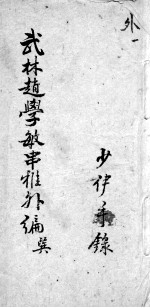 外一
武林趙學敏串雅外編
少律手錄